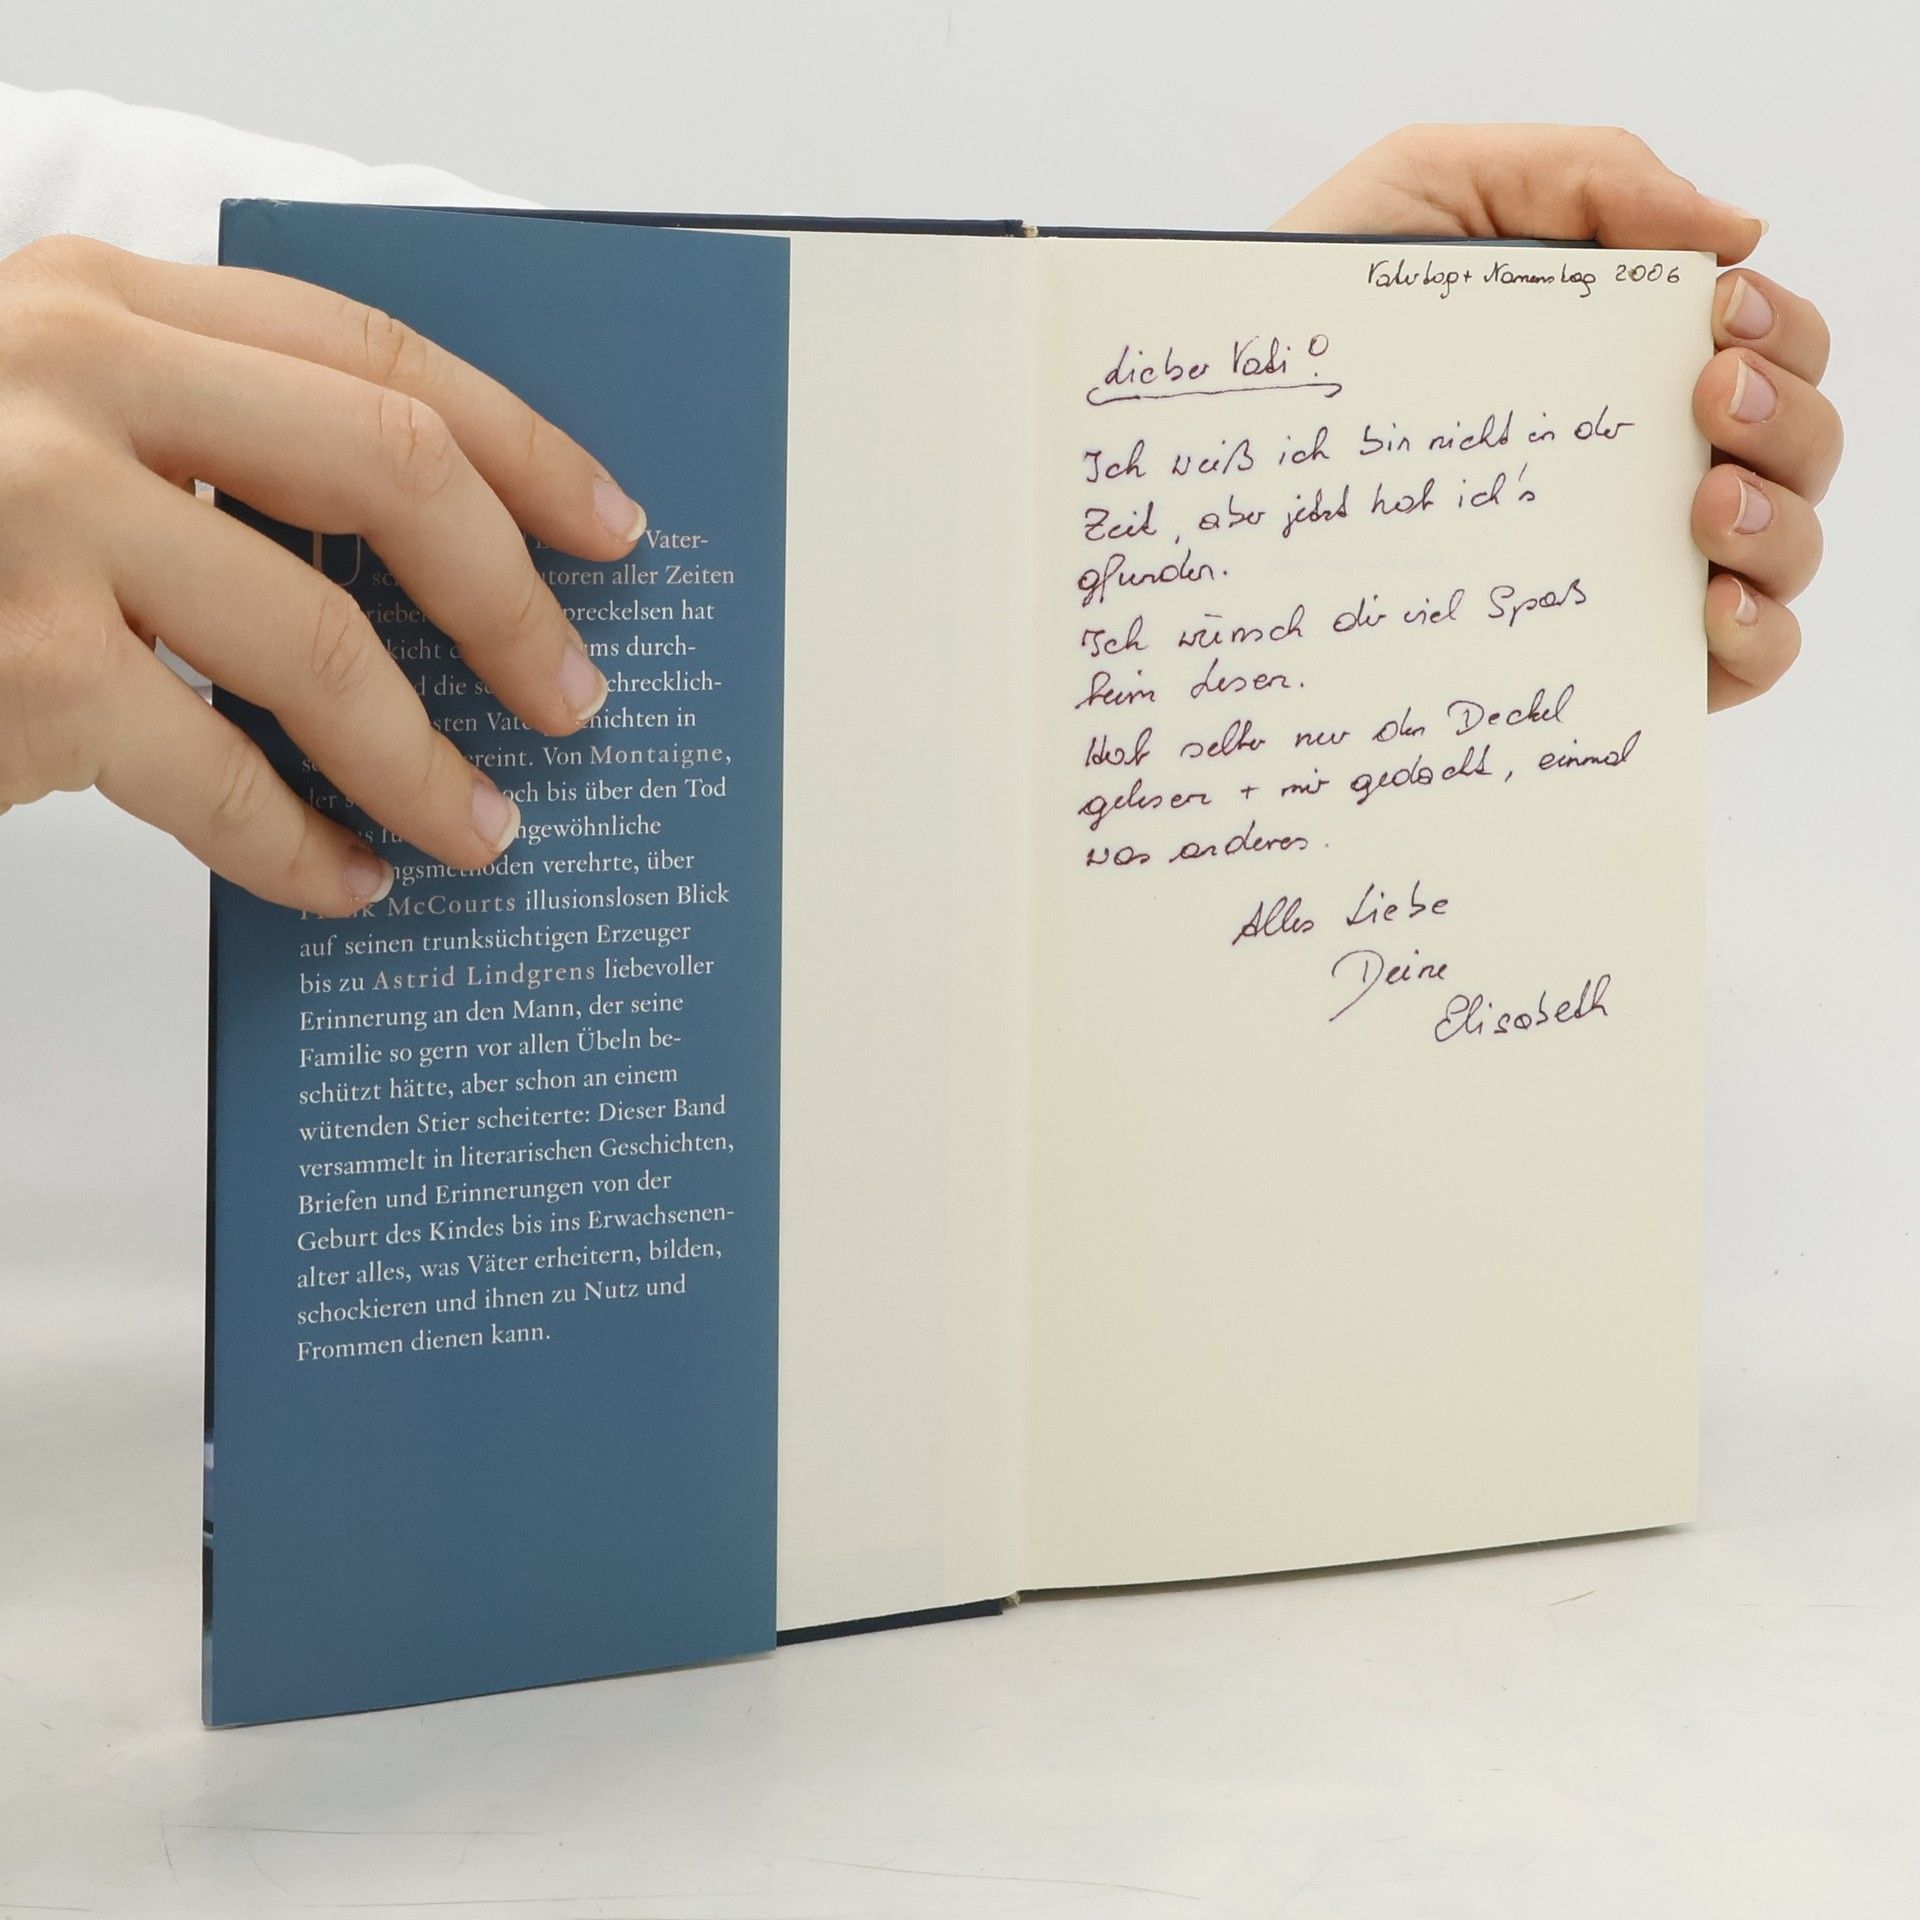 Vater-
utoren aller Zeiten
rieben preckelsen hat
kicht ms durch-
d die chrecklich-
sten Vate chichten in
reint. Von Montaigne,
der och bis über den Tod
ngewöhnliche
ngsmethoden verehrte, über
Frank McCourts illusionslosen Blick
auf seinen trunksüchtigen Erzeuger
bis zu Astrid Lindgrens liebevoller
Erinnerung an den Mann, der seine
Familie so gern vor allen Übeln be-
schützt hätte, aber schon an einem
wütenden Stier scheiterte: Dieser Band
versammelt in literarischen Geschichten,
Briefen und Erinnerungen von der
Geburt des Kindes bis ins Erwachsenen-
alter alles, was Väter erheitern, bilden,
schockieren und ihnen zu Nutz und
Frommen dienen kann.
Vatertag + Namenstag 2006
Lieber Vati!
Ich weiß ich bin nicht in der
Zeit, aber jetzt hab ich's
gfunden.
Ich wünsch dir viel Spaß
beim Lesen.
Hab selber nur den Deckel
gelesen + mir gedacht, einmal
was anderes.
Alles Liebe
Deine
Elisabeth